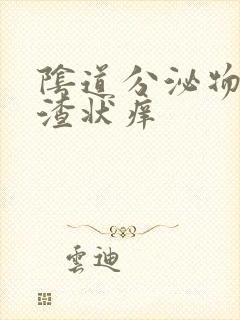 陰道分泌物
渣状痒
雲迪